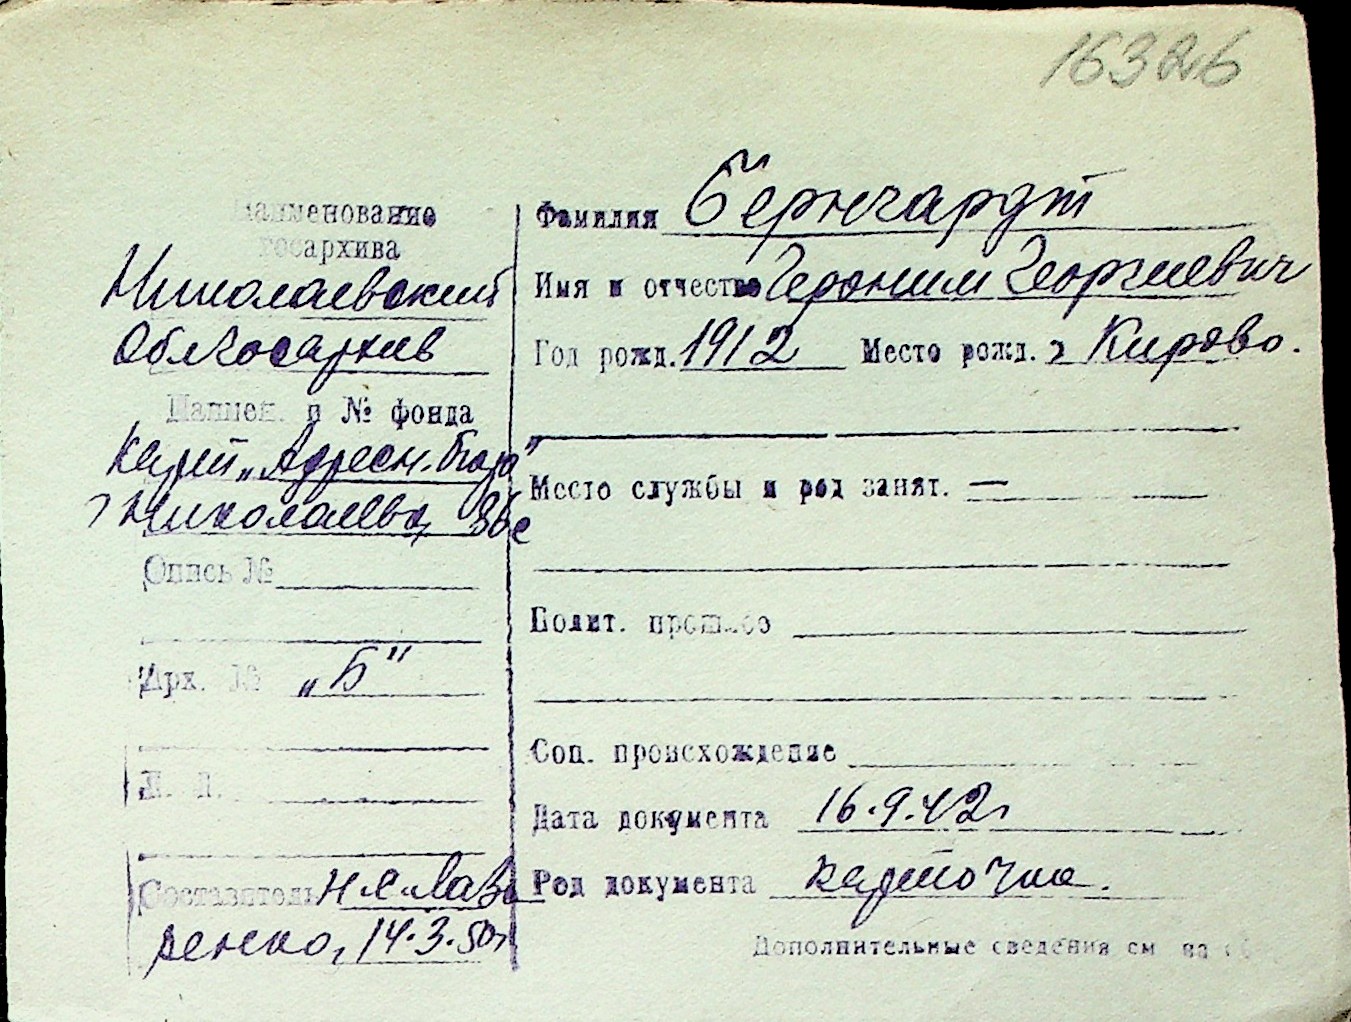 16326
Наименование
госархива
Николаевский
Облгосархив
Наимен. и № фонда
карт „Адресн. бюро"
г Николаева,
Опись №
Арх. № „Б"
Л. Л.
Составитель Лавренко, 14.3.50г
Фамилия Бернгардт
Имя и отчество Героним Георгиевич
Год рожд. 1912 Место рожд. г Кирово.
Место службы и род занят. —
Полит. прошлое
Соц. происхождение
Дата документа 16.9.42г
Род документа карточка.
Дополнительные сведения см на